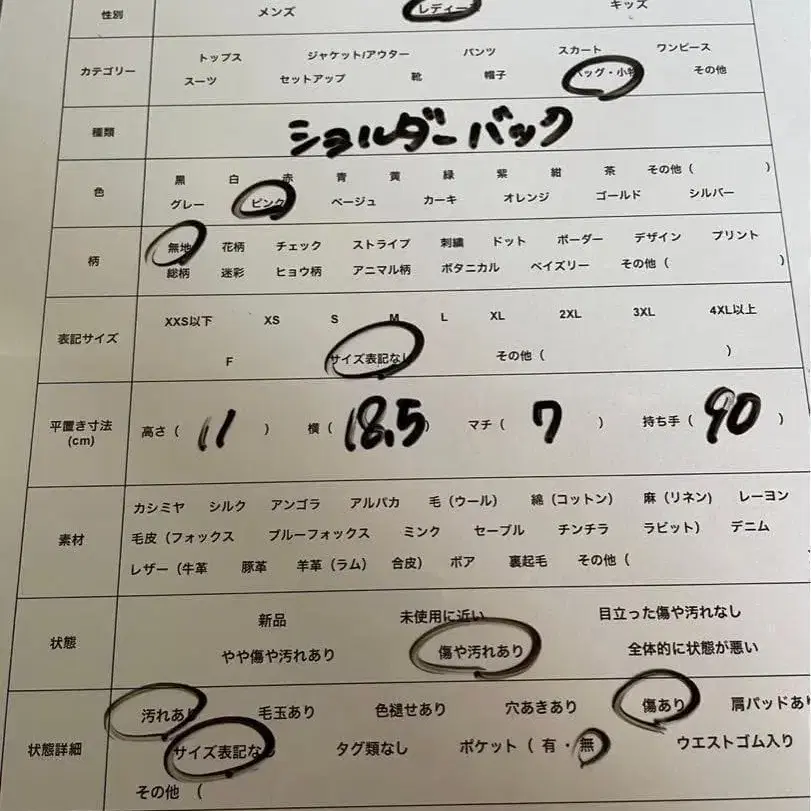 性別 メンズ レディース キッズ
カテゴリー トップス ジャケット/アウター パンツ スカート ワンピース
スーツ セットアップ 靴 帽子 バッグ・小物 その他
種類 ショルダーバック
色 黒 白 赤 青 黄 緑 紫 紺 茶 その他 ( )
グレー ピンク ベージュ カーキ オレンジ ゴールド シルバー
柄 無地 花柄 チェック ストライプ 刺繍 ドット ボーダー デザイン プリント
総柄 迷彩 ヒョウ柄 アニマル柄 ボタニカル ペイズリー その他 ( )
表記サイズ XXS以下 XS S M L XL 2XL 3XL 4XL以上
F サイズ表記なし その他 ( )
平置き寸法 (cm) 高さ ( 11 ) 横 ( 18.5 ) マチ ( 7 ) 持ち手 ( 90 )
カシミヤ シルク アンゴラ アルパカ 毛 (ウール) 綿 (コットン) 麻 (リネン) レーヨン
素材 毛皮 (フォックス ブルーフォックス ミンク セーブル チンチラ ラビット) デニム
レザー (牛革 豚革 羊革 (ラム) 合皮) ボア 裏起毛 その他 (
状態 新品 未使用に近い 目立った傷や汚れなし
やや傷や汚れあり 傷や汚れあり 全体的に状態が悪い
汚れあり 毛玉あり 色褪せあり 穴あきあり 傷あり 肩パッドあり
状態詳細 サイズ表記なし タグ類なし ポケット ( 有 ・ 無 ウエストゴム入り
その他 (